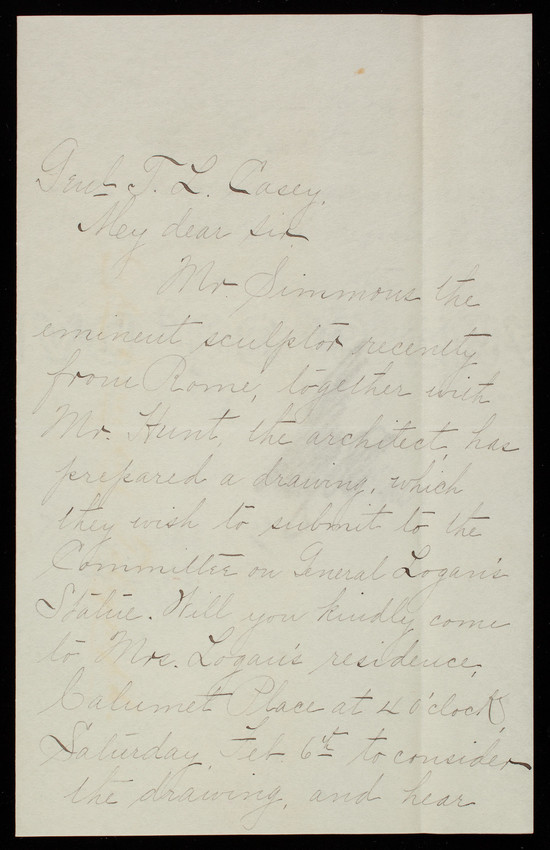 Genl T. L. Casey.
My dear sir.
Mr. Simmons the
eminent sculptor recently
from Rome, together with
Mr. Hunt, the architect, has
prepared a drawing, which
they wish to submit to the
Committee on General Logan's
Statue. Will you kindly come
to Mrs. Logan's residence,
Calumet Place at 4 O'clock,
Saturday, Feb. 6th to consider
the drawing, and hear